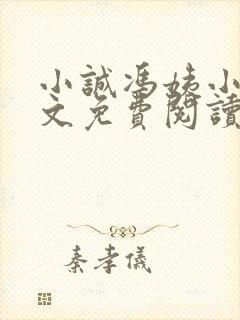 小誠馮姨小
文免費閱讀
秦孝儀